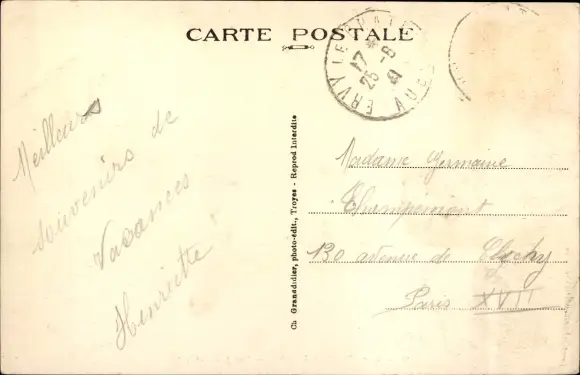 CARTE POSTALE
ERVY LE CHATEL
17 H
25 - 8
41
AUBE
Meilleurs
souvenirs de
Vacances
Henriette
Ch Grandidier, photo-édit., Troyes - Reprod Interdite
Madame Germaine
130 avenue de Clichy
Paris XVII